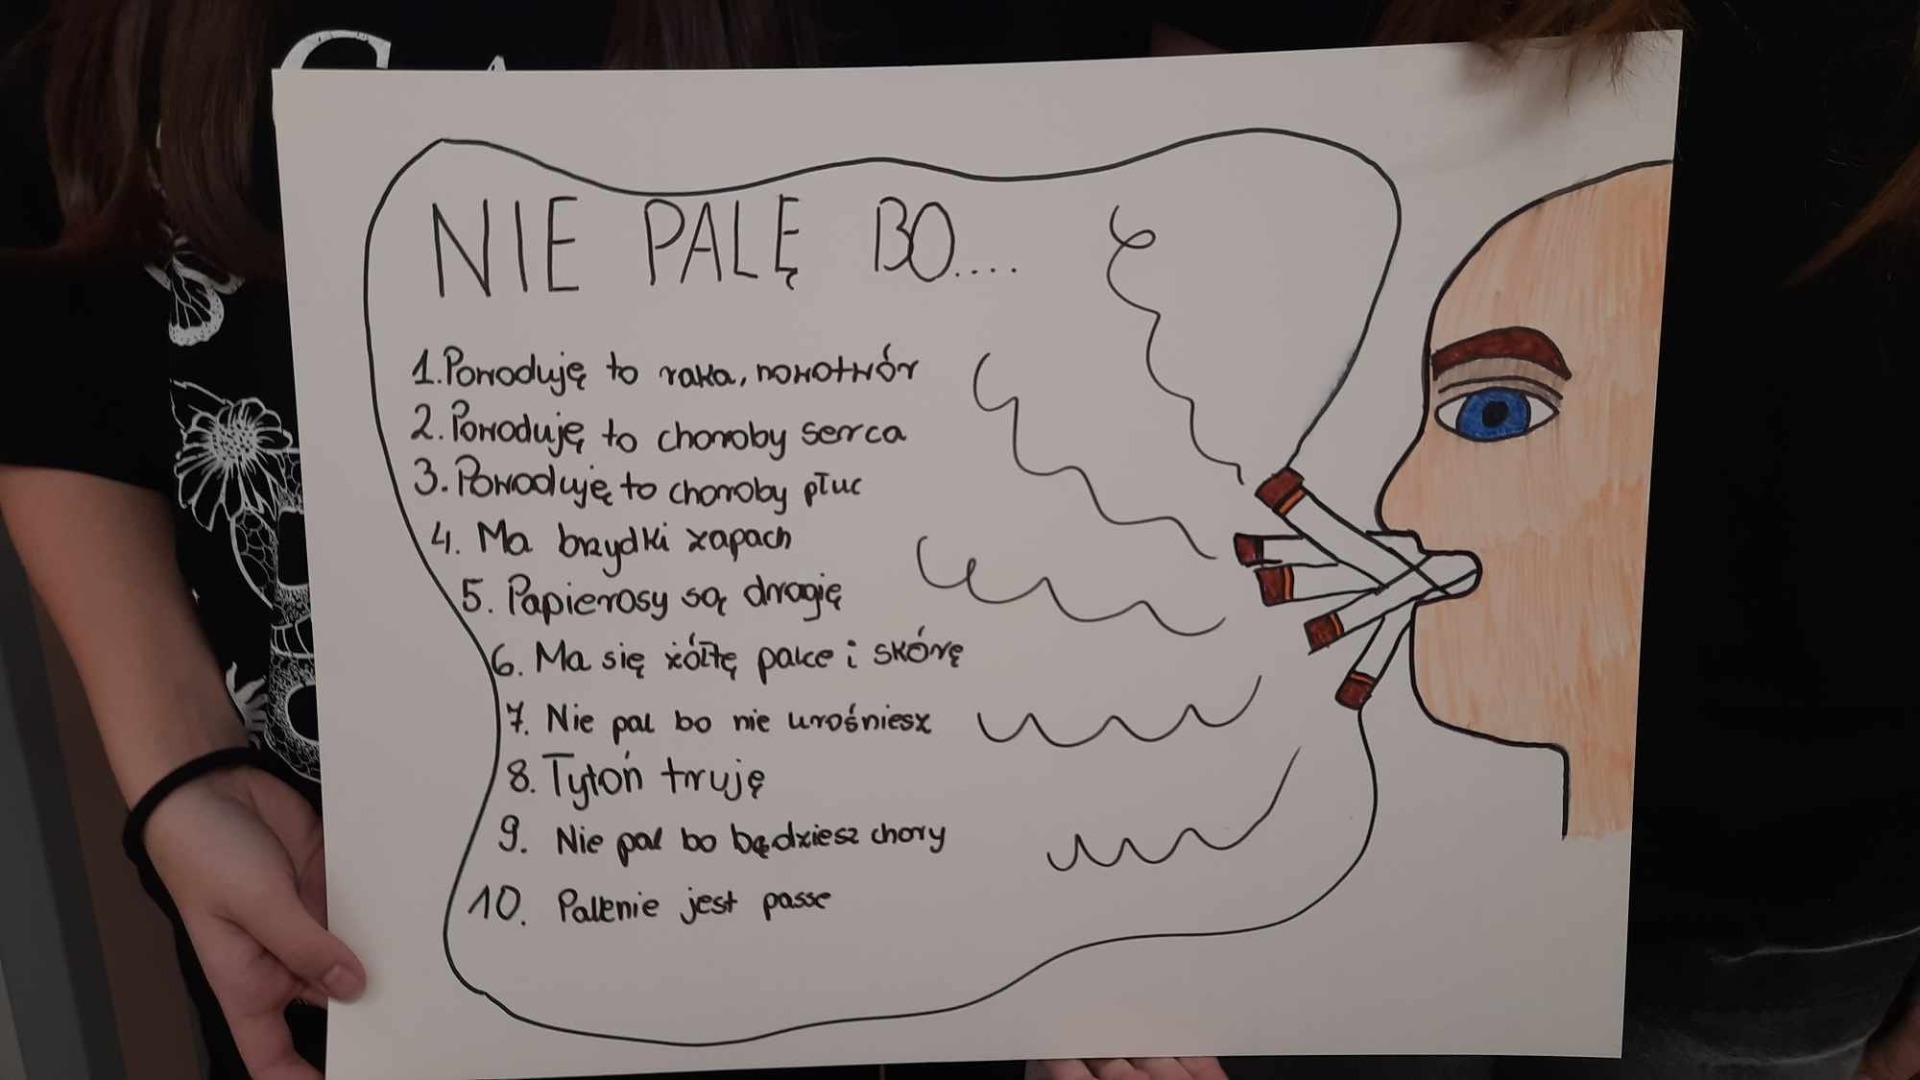 NIE PALĘ BO....
1. Powoduję to raka, nowotwór
2. Powoduję to choroby serca
3. Powoduję to choroby płuc
4. Ma brzydki zapach
5. Papierosy są drogię
6. Ma się żółtę palce i skórę
7. Nie pal bo nie urośniesz
8. Tytoń truję
9. Nie pal bo będziesz chory
10. Palenie jest passe